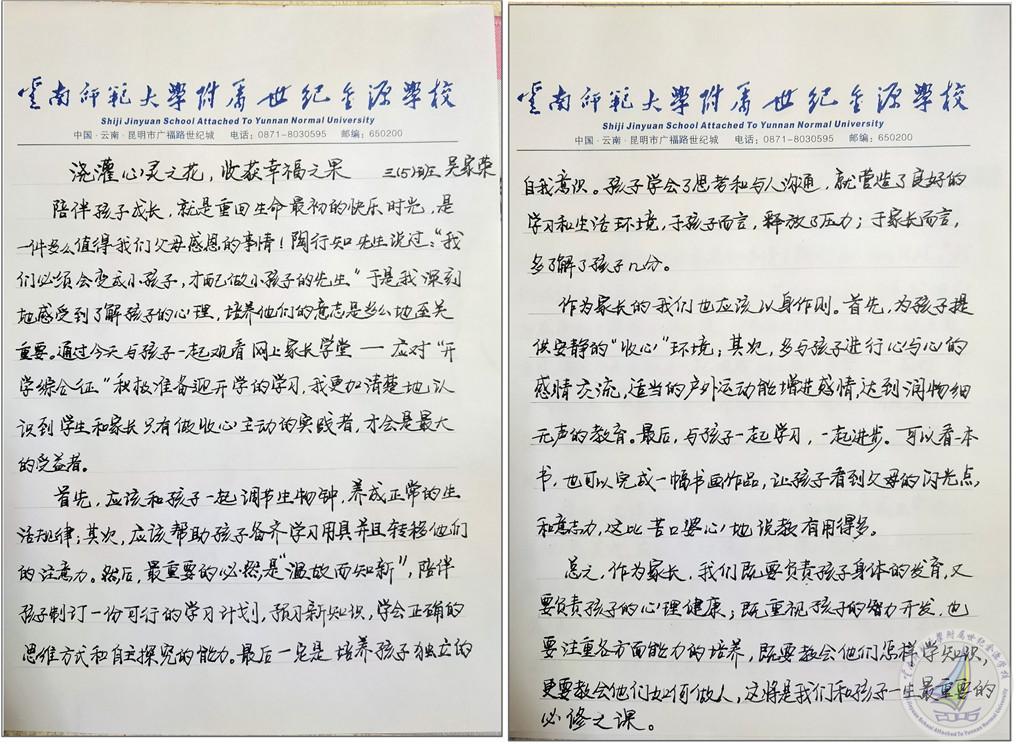 雲南師範大學附屬世紀金源學校
Shiji Jinyuan School Attached To Yunnan Normal University
中国·云南·昆明市广福路世纪城 电话：0871-8030595 邮编：650200
浇灌心灵之花，收获幸福之果 三(5)班 吴家荣
陪伴孩子成长，就是重回生命最初的快乐时光，是
一件多么值得我们父母感恩的事情！陶行知先生说过："我
们必须会变成小孩子，才配做小孩子的先生"于是我深刻
地感受到了解孩子的心理，培养他们的意志是多么地至关
重要。通过今天与孩子一起观看网上家长学堂——应对"开
学综合征"积极准备迎开学的学习，我更加清楚地认
识到学生和家长只有做收心主动的实践者，才会是最大
的受益者。
首先，应该和孩子一起调节生物钟，养成正常的生
活规律；其次，应该帮助孩子备齐学习用具并且转移他们
的注意力。然后，最重要的必然是"温故而知新"，陪伴
孩子制订一份可行的学习计划，预习新知识，学会正确的
思维方式和自主探究的能力。最后一定是培养孩子独立的
雲南師範大學附屬世紀金源學校
Shiji Jinyuan School Attached To Yunnan Normal University
中国·云南·昆明市广福路世纪城 电话：0871-8030595 邮编：650200
自我意识。孩子学会了思考和与人沟通，就营造了良好的
学习和生活环境，于孩子而言，释放了压力；于家长而言，
多了解了孩子几分。
作为家长的我们也应该以身作则。首先，为孩子提
供安静的"收心"环境；其次，多与孩子进行心与心的
感情交流，适当的户外运动能增进感情，达到润物细
无声的教育。最后，与孩子一起学习，一起进步。可以看一本
书，也可以完成一幅书画作品，让孩子看到父母的闪光点，
和意志力，这比苦口婆心地说教有用得多。
总之，作为家长，我们既要负责孩子身体的发育，又
要负责孩子的心理健康；既重视孩子的智力开发，也
要注重各方面能力的培养，既要教会他们怎样学知识，
更要教会他们如何做人，这将是我们和孩子一生最重要的
必修之课。
雲南師範大學附屬世紀金源學校
Shiji Jinyuan School Attached To Yunnan Normal University